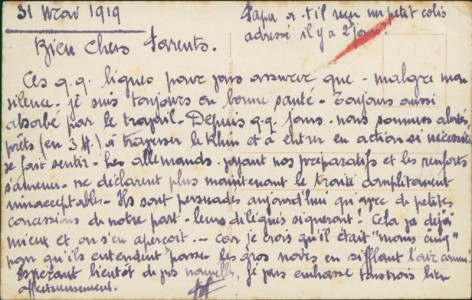 31 Mai 1919
Papa a t'il reçu un petit colis
adressé il y a 2 jours
Bien chers Parents.
Ces q.q. lignes pour vous assurer que - malgré mon
silence - je suis toujours en bonne santé - Toujours aussi
absorbé par le travail - Depuis q.q. jours - nous sommes alertés,
prêts (en 3 H.) à traverser le Rhin et à entrer en action si nécessité
se fait sentir - Les allemands - voyant nos préparatifs et les renforts
s'amener - ne déclarent plus maintenant le traité complètement
innacceptable - Ils sont persuadés aujourd'hui qu'avec de petites
concessions de notre part - leurs délégués signeront ! Cela va déjà
mieux et on s'en aperçoit - car je crois qu'il était "moins cinq"
pour qu'ils entendent passer les gros noirs en sifflant l'air connu
Espérant bientôt de vos nouvelles, je vous embrasse tous trois bien
affectueusement.